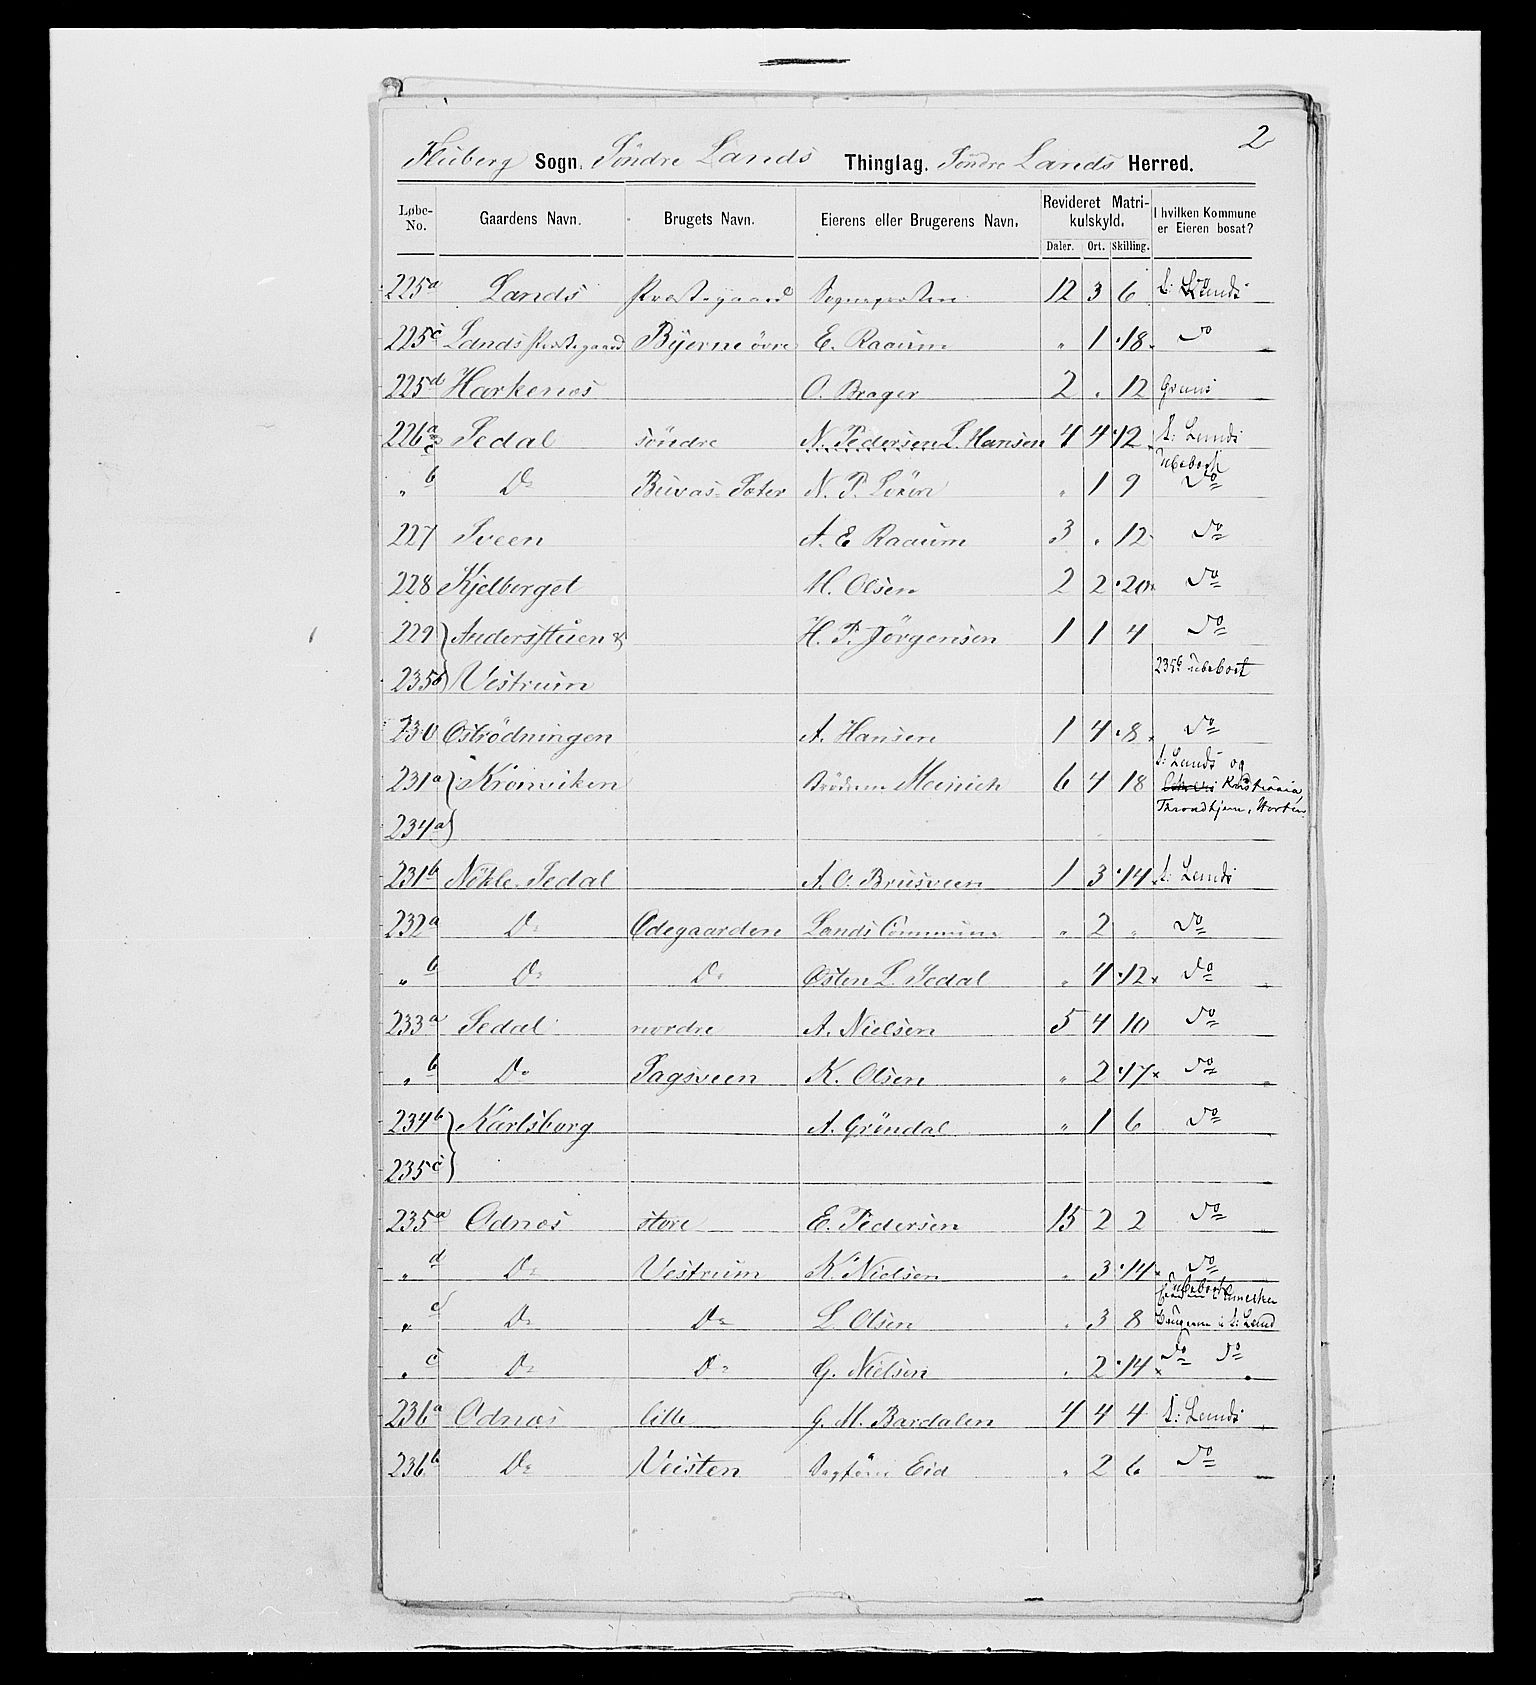 2
Fluberg Sogn. Söndre Lands Thinglag. Söndre Lands Herred.
Løbe-No. Gaardens Navn. Brugets Navn. Eierens eller Brugerens Navn. Revideret Matrikulskyld. I hvilken Kommune er Eieren bosat?
Daler. Ort. Skilling.
225a Lands Præstegaard Sognepresten 12 3 6 S: Lands
225c Lands Præstegaard Byerne övre E. Raaum " 1 18 Do
225d Harkenæs O. Brager 2 . 12 Grans
226a Sedal söndre N. Pedersen L. Hansen 4 4 12 S: Lands
" b Do N. P. " 1 9 Ubeboet Do
227 Sveen A. E Raaum 3 . 12 Do
228 Kjelberget M. Olsen 2 2 20 Do
229 Andersstuen & H. P. Jörgensen 1 1 4 Do
235b Vestrum 235b Ubeboet
230 Oströdningen A. Hansen 1 4 8 Do
231a Kronviken Brödrene Meinich 6 4 18 S: Lands og Kristiania, Throndhjem, Horten
234a
231b Nökle Sedal A. O. Brusveen 1 3 14 S: Lands
232a Do Ödegaarden Lands Commune " 2 " Do
" b Do Do Østen L. Sedal " 4 12 Do
233a Sedal nordre A. Nielsen 5 4 10 Do
" b Do Sagsveen K. Olsen " 2 17 Do
234b Karlsborg A. Gröndal " 1 6 Do
235c
235a Odnæs store E. Pedersen 15 2 2 Do
" d Do Vestrum K. Nielsen " 3 14 Do
" Do Do L. Olsen " 3 8 Ubeboet Brugeren i S: Land
" Do Do G. Nielsen " 2 14 Do Do
236a Odnæs lille G. M. Bardalen 4 4 4 S: Lands
236b Do Veisten Sagförer Eid " 2 6 Do